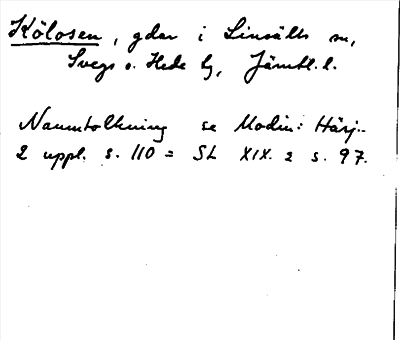 Kölosen, gdar i Linsälls sn,
Svegs o. Hede tg, Jämtl. l.
Namntolkning se Modin: Härj.
2 uppl. s. 110 = SL XIX. 2 s. 97.